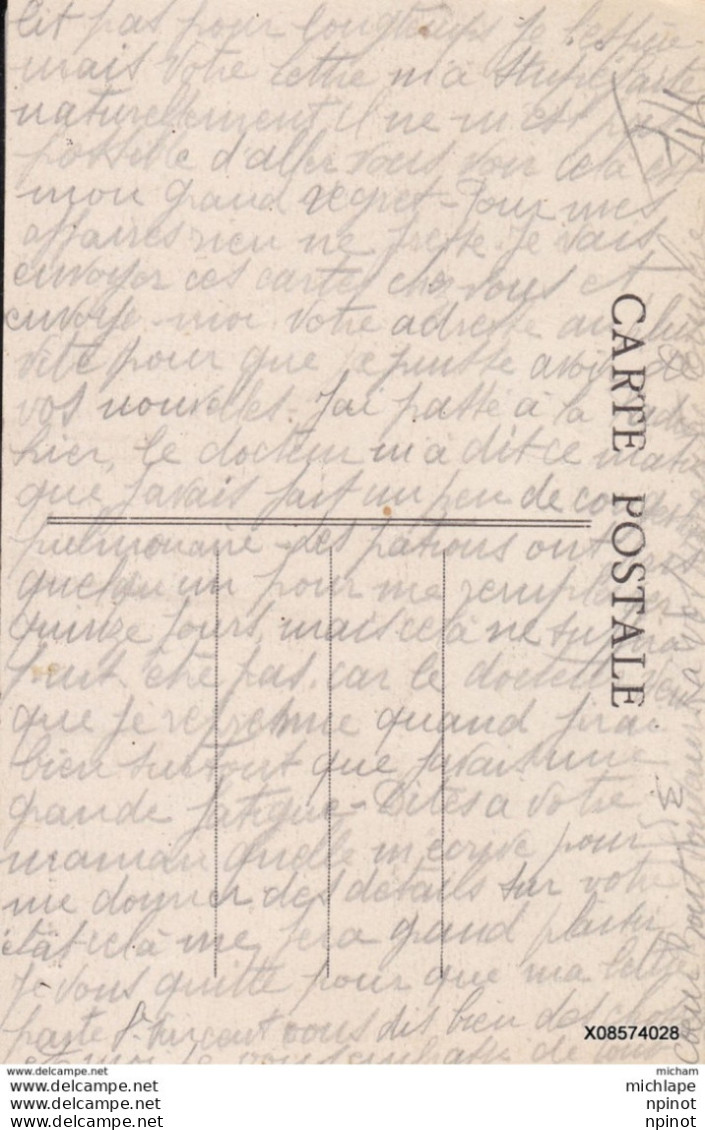 lit pas pour longtemps je l'espère
mais votre lettre m'a stupéfaite
naturellement il ne m'est pas
possible d'aller vous voir cela est
mon grand regret - Pour mes
affaires rien ne presse. Je vais
envoyer ces cartes chez vous et
envoyé-moi votre adresse au plus
vite pour que je puisse avoir de
vos nouvelles. J'ai passé à la
hier, le docteur m'a dit ce matin
que j'avais fait un peu de
pulmonaire - des patrons ont
quelqu'un pour me remplacer
quinze jours, mais cela ne
peut être pas, car le docteur veut
que je reprenne quand j'irai
bien surtout que j'avais une
grande fatigue - Dites à votre
maman quelle m'écrive pour
me donner des détails sur votre
état celà me fera grand plaisir
Je vous quitte pour que ma lettre
parte P. Vincent vous dis bien des choses
et moi je vous embrasse de tout
coeur
CARTE POSTALE
X08574028
www.delcampe.net
micham
michlape
npinot
npinot